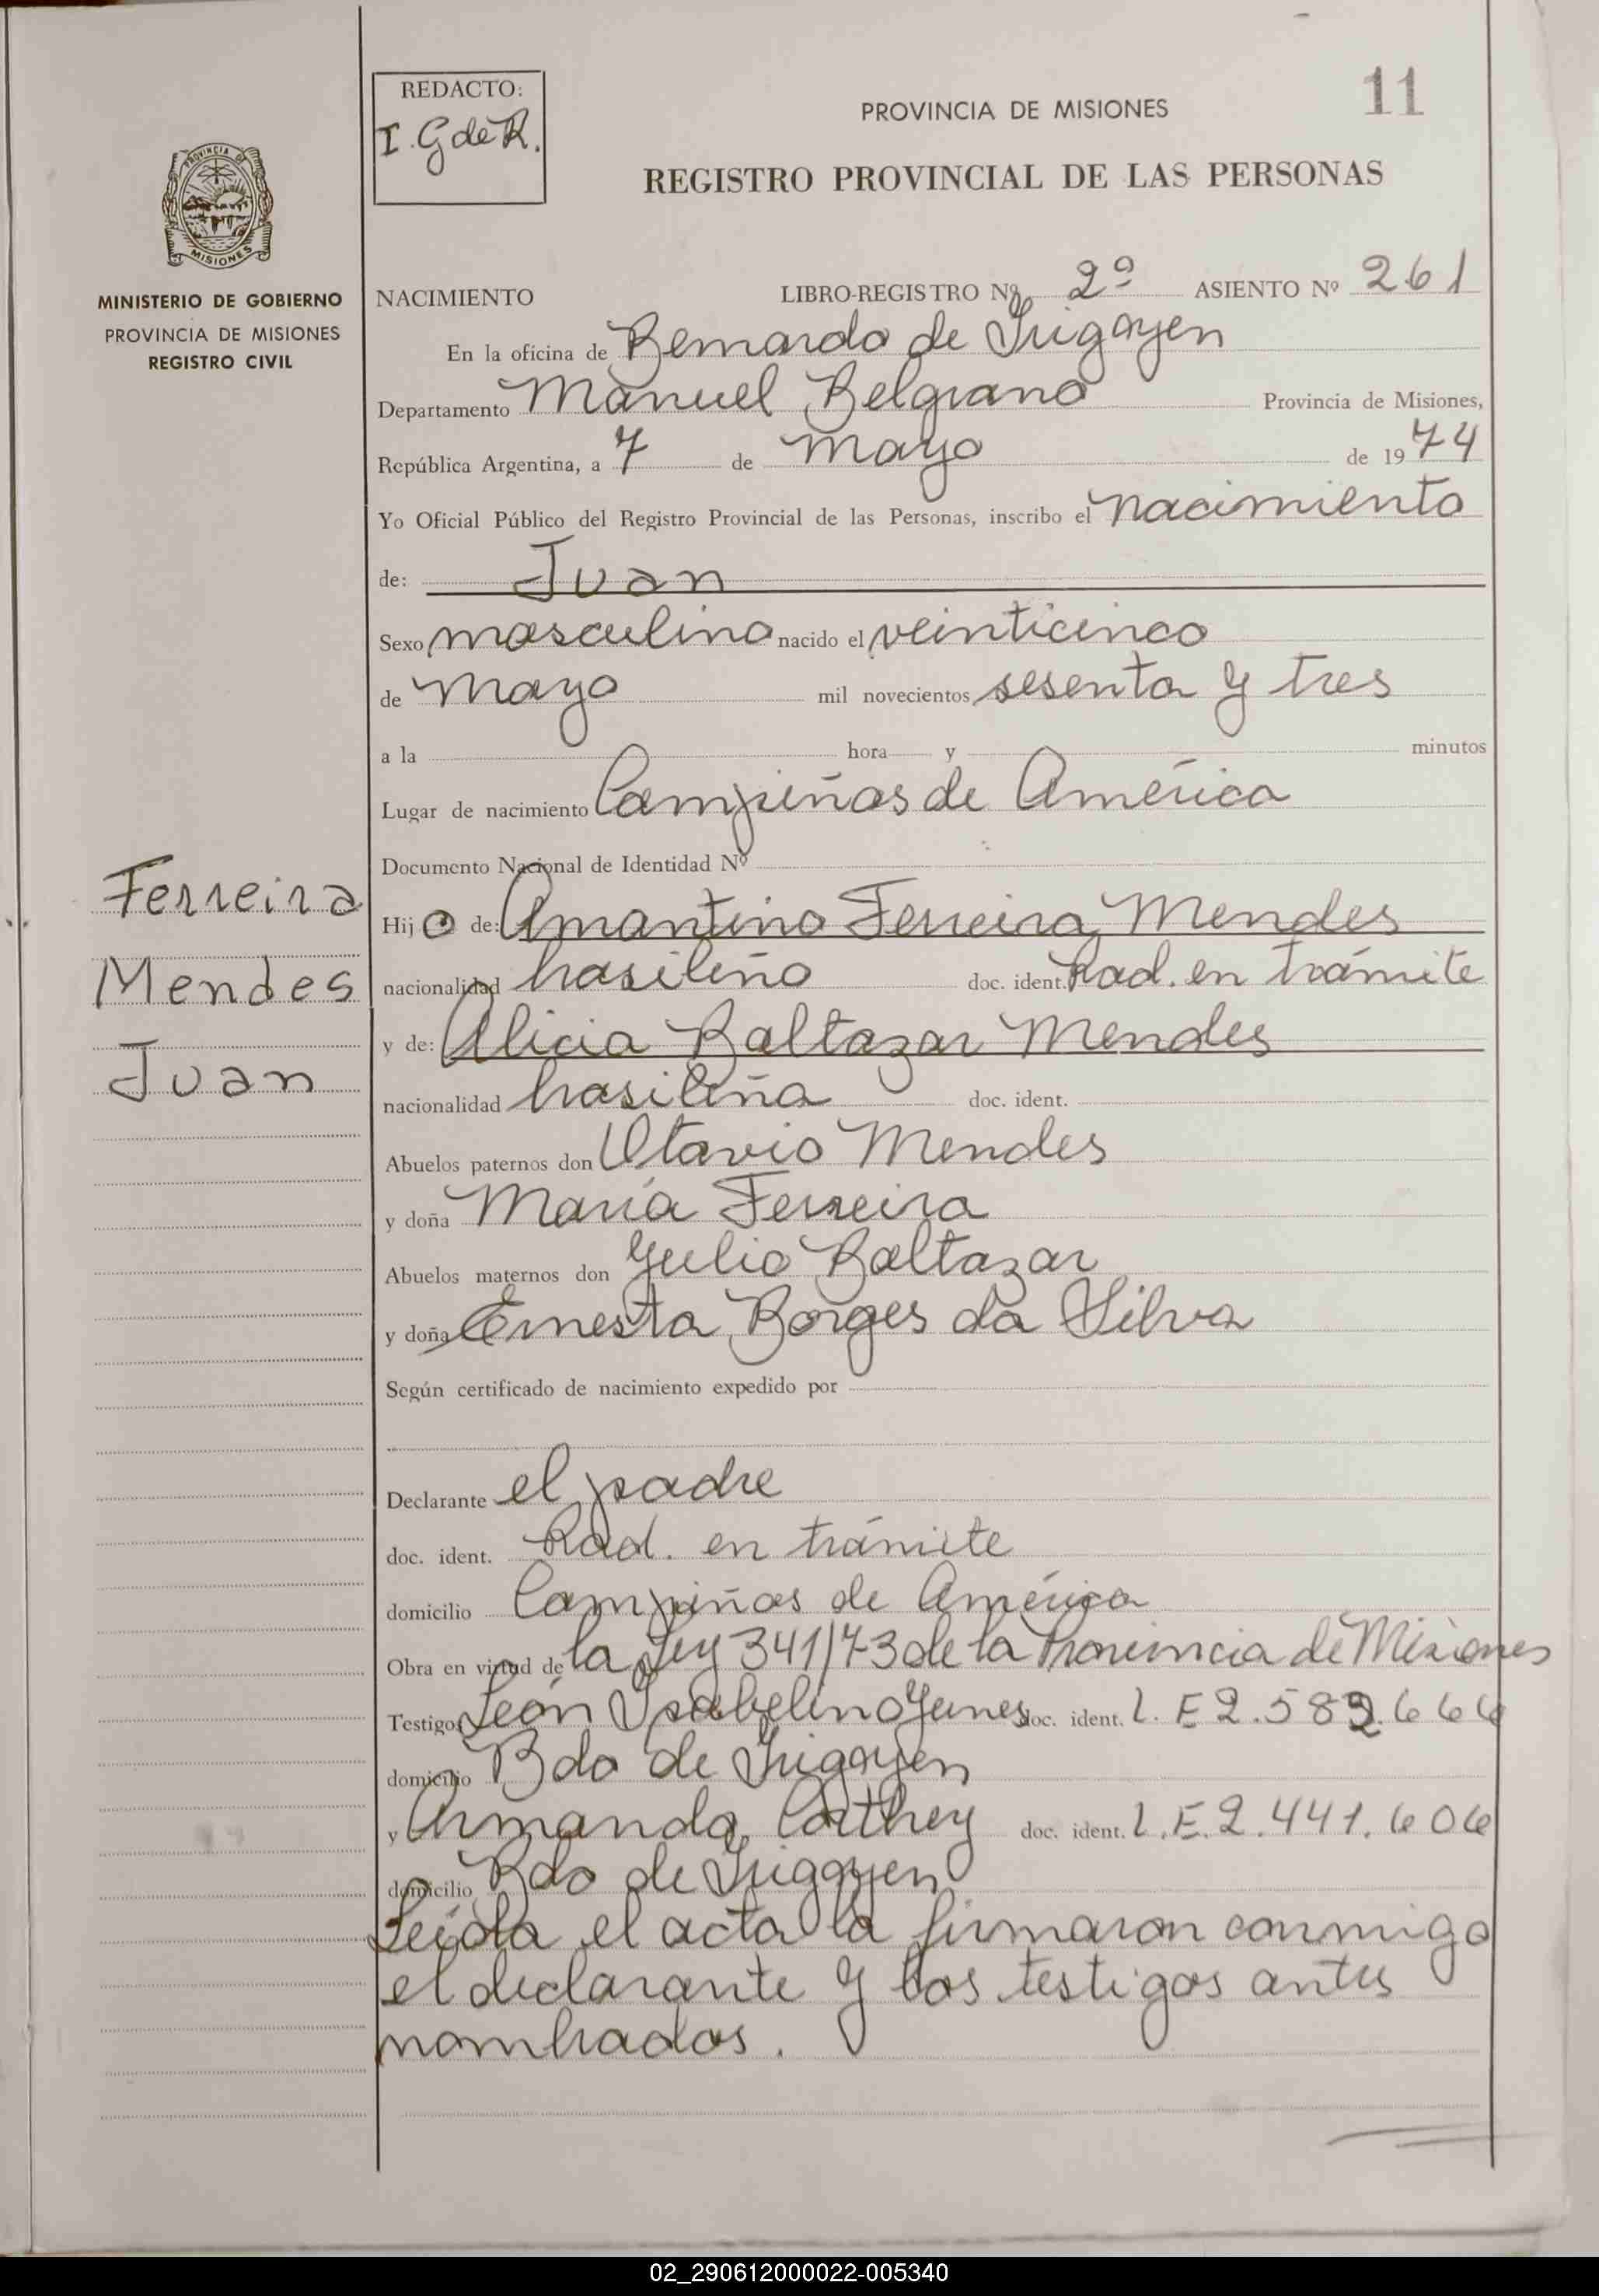 11
REDACTO:
I. G de R.
PROVINCIA DE MISIONES
REGISTRO PROVINCIAL DE LAS PERSONAS
PROVINCIA DE
MISIONES
MINISTERIO DE GOBIERNO
PROVINCIA DE MISIONES
REGISTRO CIVIL
NACIMIENTO LIBRO-REGISTRO Nº 2º ASIENTO Nº 261
En la oficina de Bernardo de Irigoyen
Departamento Manuel Belgrano Provincia de Misiones,
República Argentina, a 7 de Mayo de 1974
Yo Oficial Público del Registro Provincial de las Personas, inscribo el nacimiento
de: Juan
Sexo masculino nacido el veinticinco
de Mayo mil novecientos sesenta y tres
a la hora y minutos
Lugar de nacimiento Campiñas de América
Documento Nacional de Identidad Nº
Ferreira
Mendes
Juan
Hijo de: Amantino Ferreira Mendes
nacionalidad brasileño doc. ident. Rad. en trámite
y de: Alicia Baltazar Mendes
nacionalidad brasileña doc. ident.
Abuelos paternos don Otavio Mendes
y doña María Ferreira
Abuelos maternos don Julio Baltazar
y doña Ernesta Borges da Silva
Según certificado de nacimiento expedido por
Declarante el padre
doc. ident. Rad. en trámite
domicilio Campiñas de América
Obra en virtud de la Ley 341/73 de la Provincia de Misiones
Testigos León Ysabelino Yunes doc. ident. L. E 2.582.666
domicilio Bdo de Irigoyen
y Armando Corthey doc. ident. L.E. 2.441.606
domicilio Bdo de Irigoyen
Leída el acta la firmaron conmigo
el declarante y los testigos antes
nombrados.
02_290612000022-005340